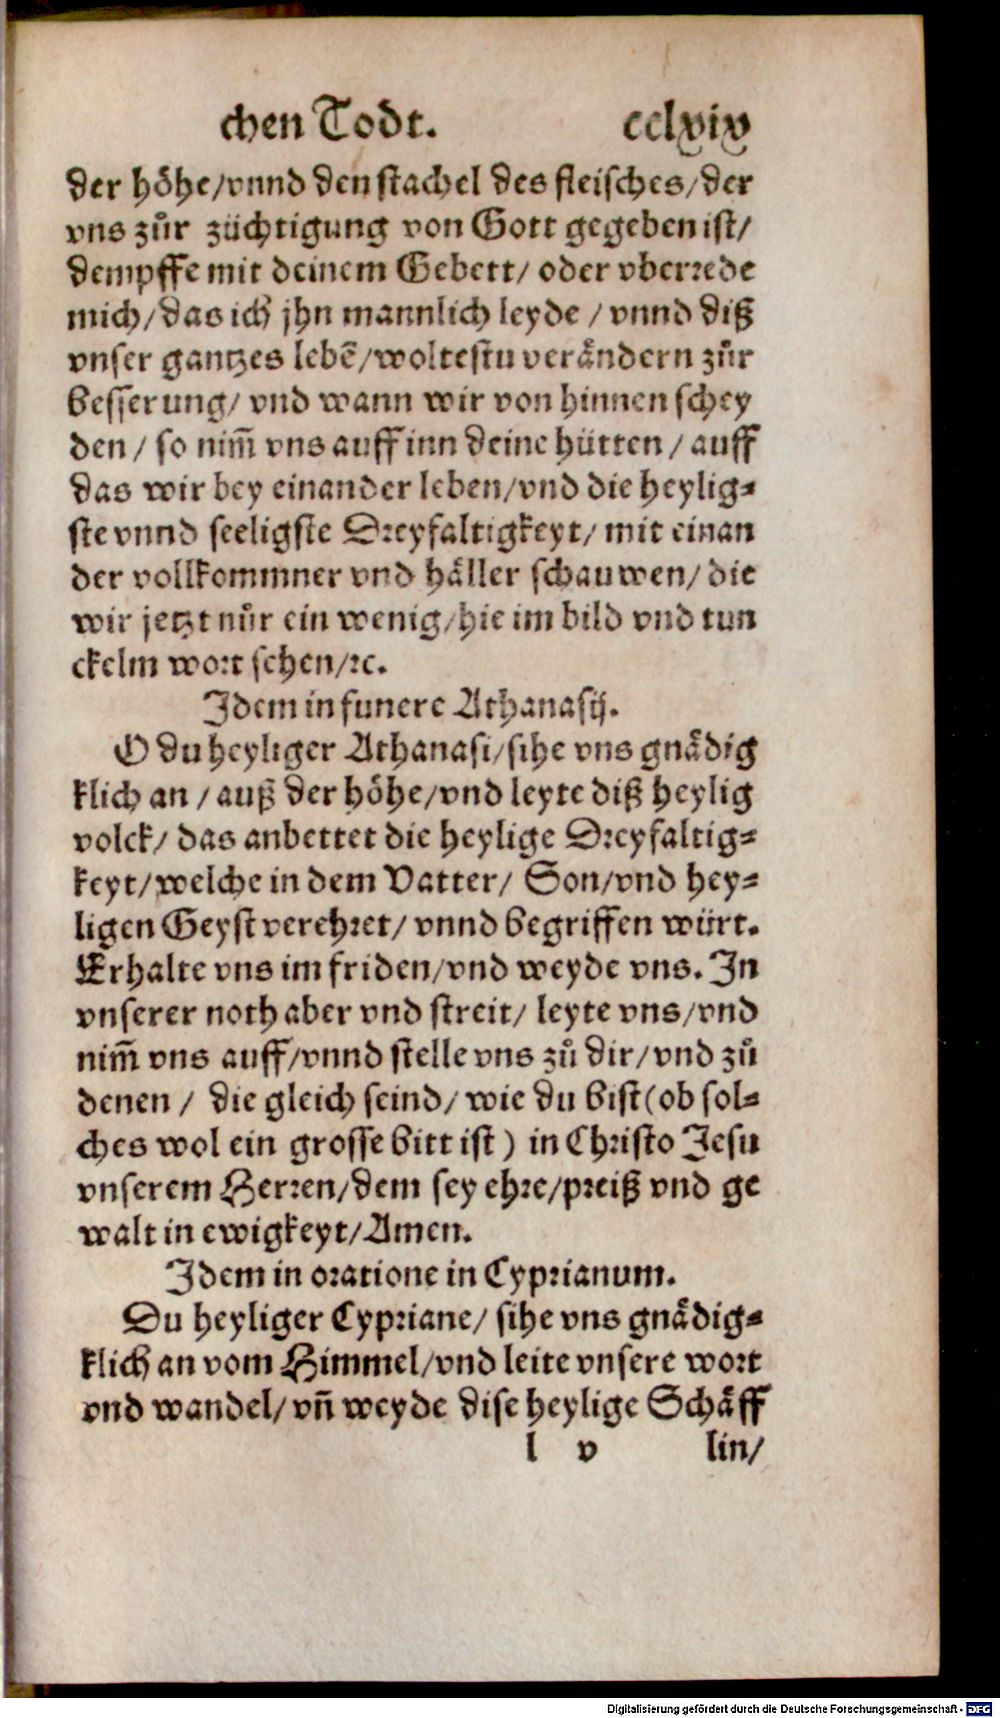 chen Todt. cclxix
der hoͤhe/vnnd den stachel des fleisches/der
vns zuͦr züchtigung von Gott gegeben ist/
dempffe mit deinem Gebett/ oder vberrede
mich/das ich jhn mannlich leyde / vnnd diß
vnser gantzes lebē/woltestu veraͤndern zuͦr
besserung/ vnd wann wir von hinnen schey
den / so nim̄ vns auff inn deine hütten / auff
das wir bey einander leben/vnd die heylig⸗
ste vnnd seeligste Dreyfaltigkeyt/ mit einan
der vollkommner vnd haͤller schauwen/ die
wir jetzt nuͦr ein wenig/hie im bild vnd tun
ckelm wort sehen/ꝛc.
Idem in funere Athanasij.
O du heyliger Athanasi/sihe vns gnaͤdig
klich an / auß der hoͤhe/vnd leyte diß heylig
volck/ das anbettet die heylige Dreyfaltig⸗
keyt/welche in dem Vatter/ Son/vnd hey⸗
ligen Geyst verehret/ vnnd begriffen würt.
Erhalte vns im friden/vnd weyde vns. In
vnserer noth aber vnd streit/ leyte vns/vnd
nim̄ vns auff/vnnd stelle vns zuͦ dir/vnd zuͦ
denen / die gleich seind/ wie du bist(ob sol⸗
ches wol ein grosse bitt ist) in Christo Jesu
vnserem Herren/dem sey ehre/preiß vnd ge
walt in ewigkeyt/Amen.
Idem in oratione in Cyprianum.
Du heyliger Cypriane/ sihe vns gnaͤdig⸗
klich an vom Himmel/vnd leite vnsere wort
vnd wandel/ vn̄ weyde dise heylige Schaͤff
l v lin/
Digitalisierung gefördert durch die Deutsche Forschungsgemeinschaft - DFG